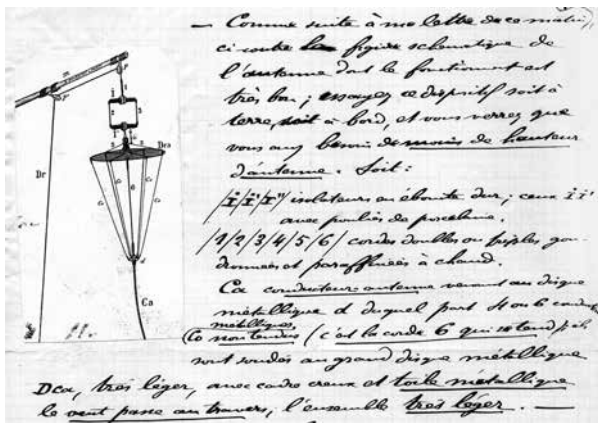 — Comme suite à ma lettre de ce matin,
ci contre la figure schématique de
l'antenne dont le fonctionnement est
très bon; essayez ce dispositif soit à
terre, soit à bord, et vous verrez que
vous aurez besoin de moins de hauteur
d'antenne. Soit:
/I/I'/I"/ isolateurs en ébonite dur; ceux I I'
avec poulies de porcelaine.
/1/2/3/4/5/6/ cordes doubles ou triples gou-
dronnées et paraffinées à chaud.
Ca conducteur antenne venant au disque
métallique d duquel part 4 ou 6
métalliques
Co non tendus (c'est la corde 6 qui se tend)
sont soudés au grand disque métallique
Dca, très léger, avec cadre creux et toile métallique
le vent passe au travers, l'ensemble très léger. —
m
P
Dr
Dca
Ca